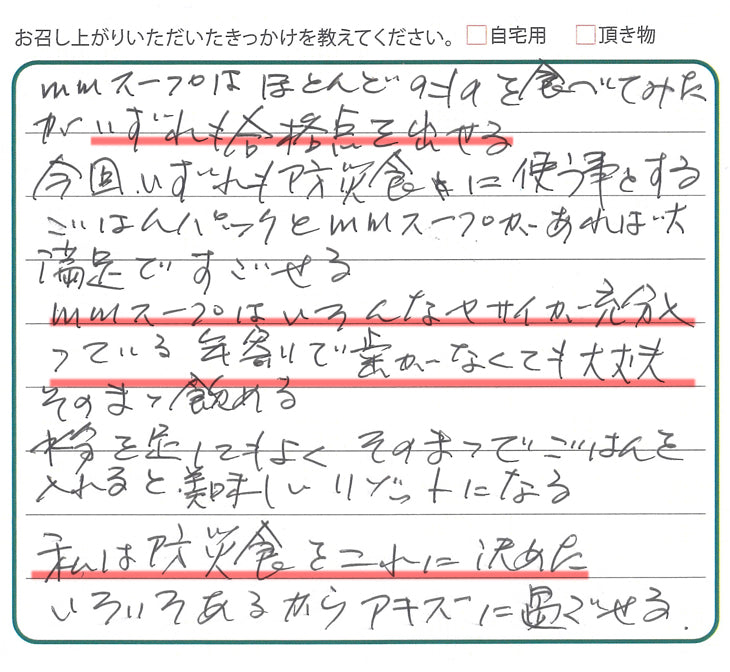 お召し上がりいただいたきっかけを教えてください。 □自宅用 □頂き物
mmスープはほとんどのものを食べてみた
がいずれも合格点を出せる
今回、いずれも防災食に使う事とする
ごはんパックとmmスープがあれば大
満足ですごせる
mmスープはいろんなヤサイが充分入
っている 年寄りで歯がなくても大丈夫
そのまゝ飲める
水を足してもよく そのまゝでごはんを
入れると美味しいリゾットになる
私は防災食をこれに決めた
いろいろあるからアキズに過ごせる.